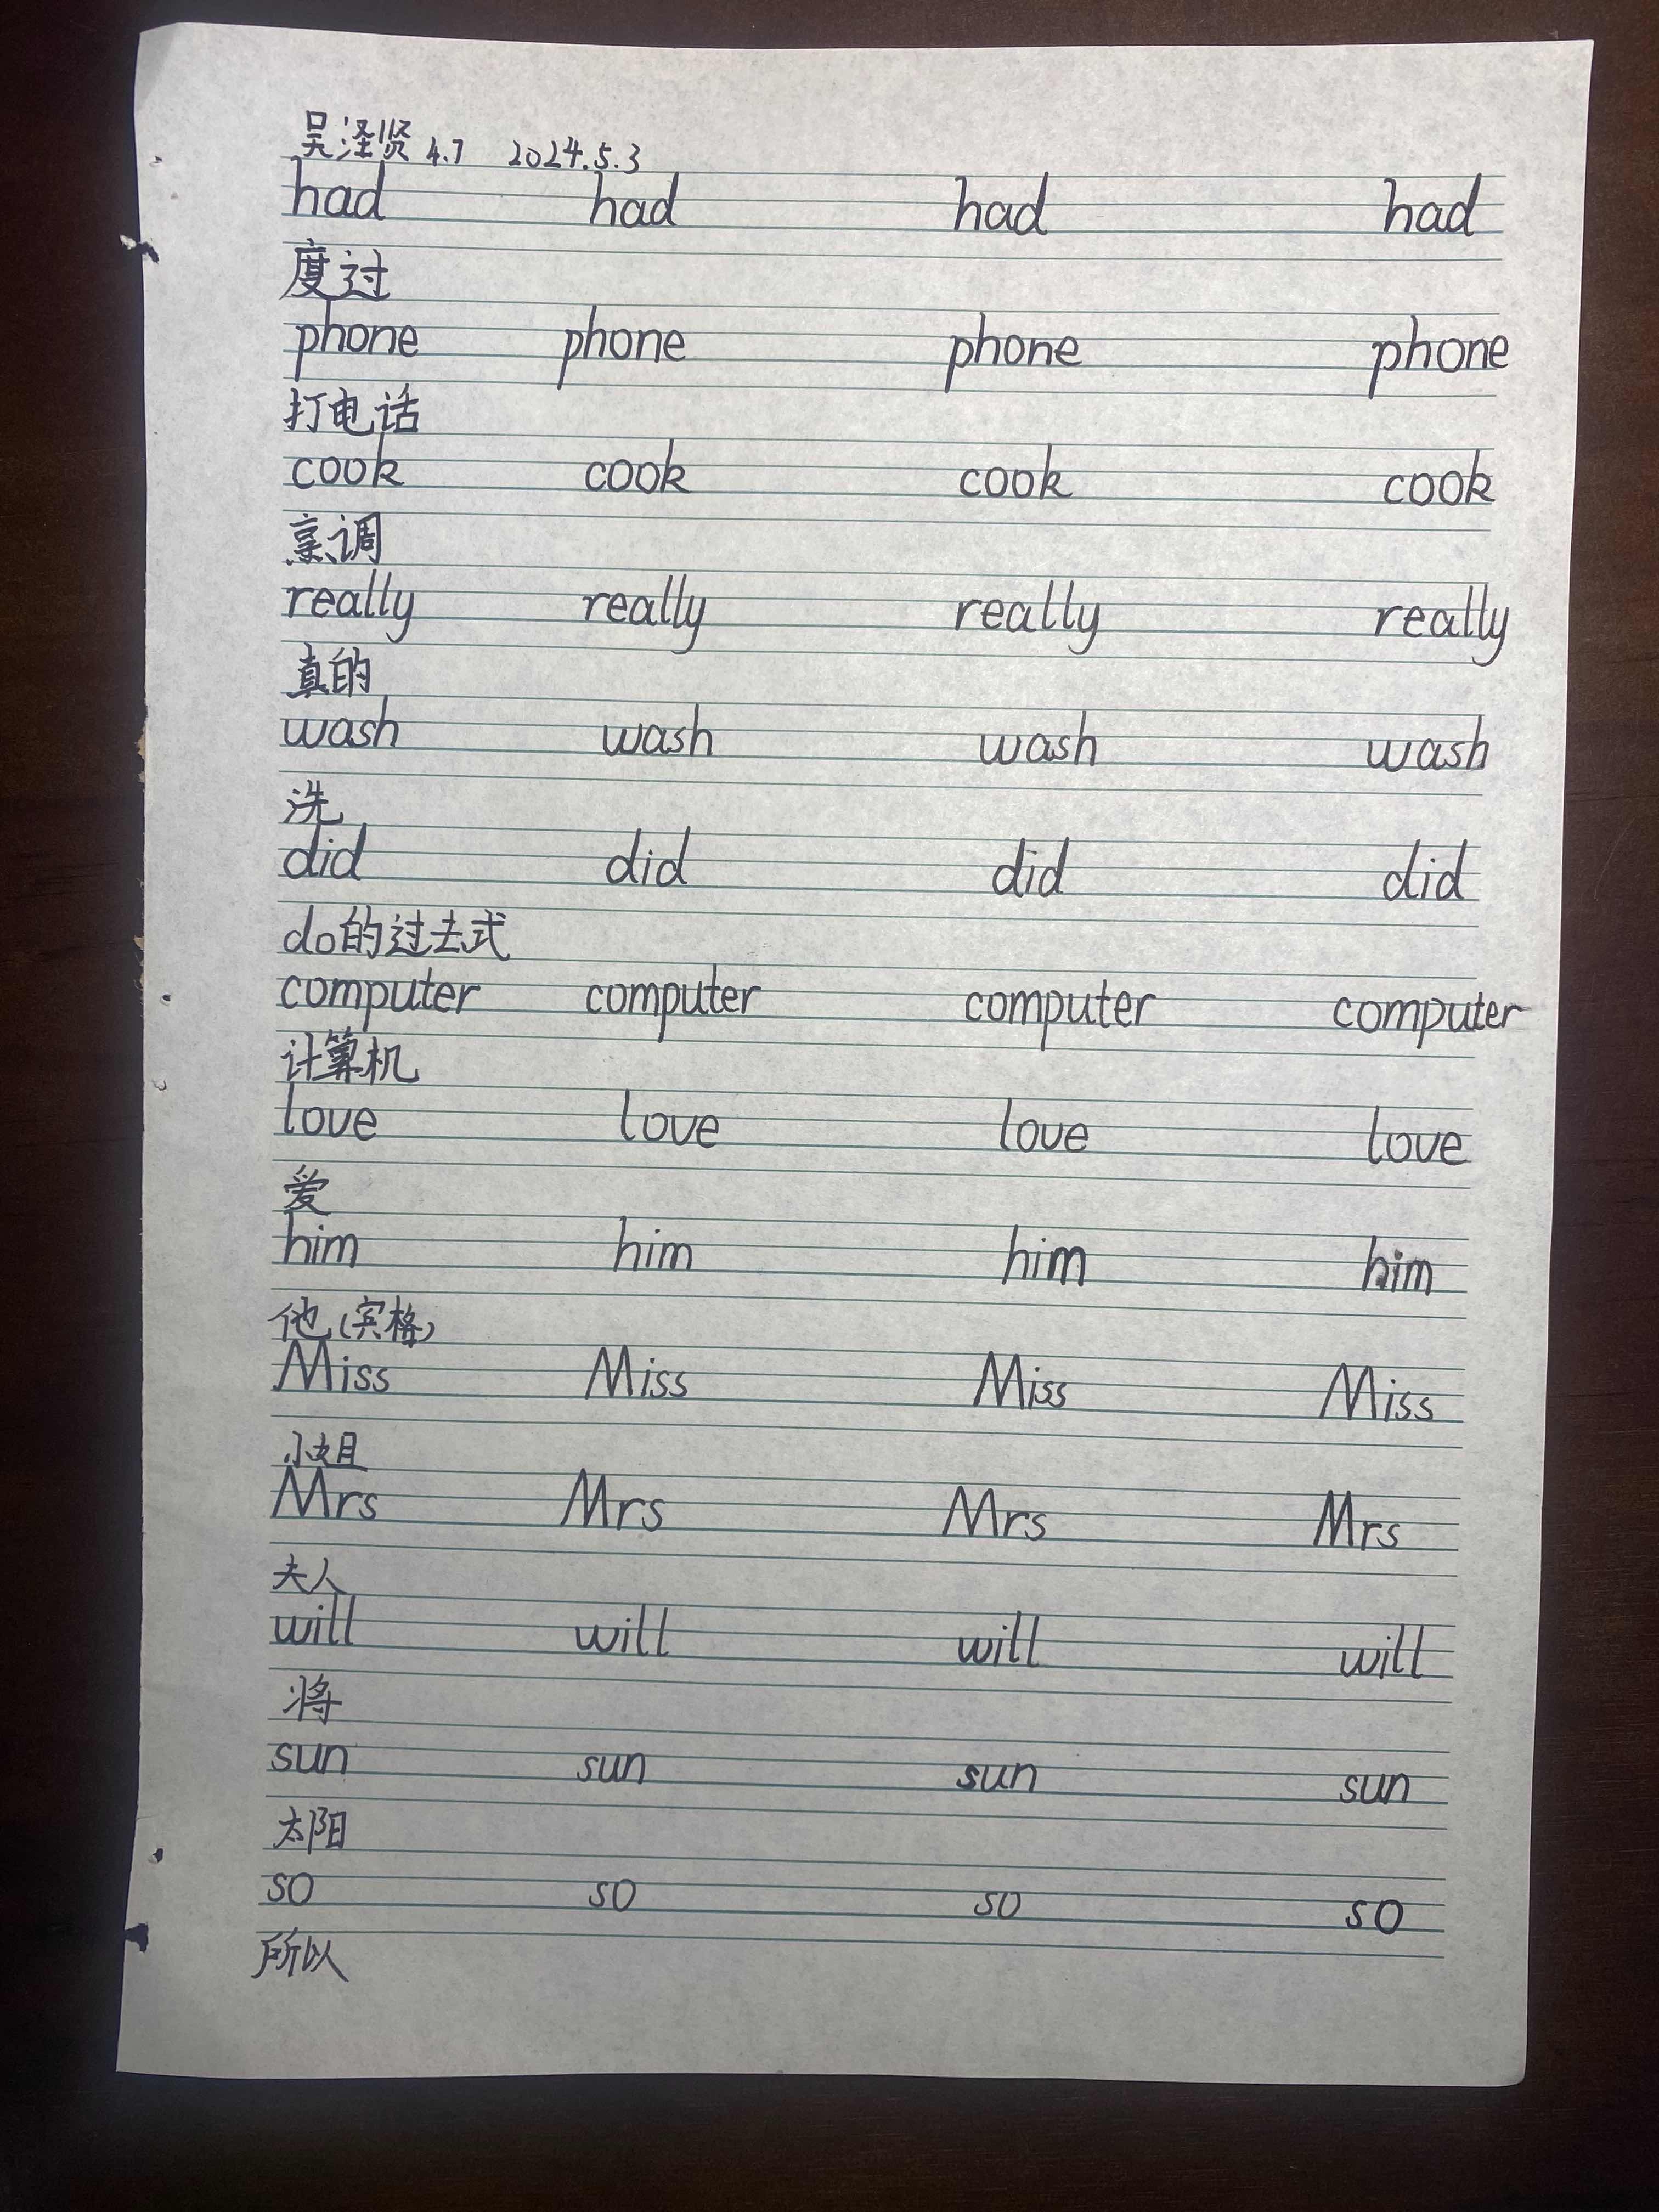 吴泽贤 4.7 2024.5.3
had had had had
度过
phone phone phone phone
打电话
cook cook cook cook
烹调
really really really really
真的
wash wash wash wash
洗
did did did did
do的过去式
computer computer computer computer
计算机
love love love love
爱
him him him him
他(宾格)
Miss Miss Miss Miss
小姐
Mrs Mrs Mrs Mrs
夫人
will will will will
将
sun sun sun sun
太阳
so so so so
所以